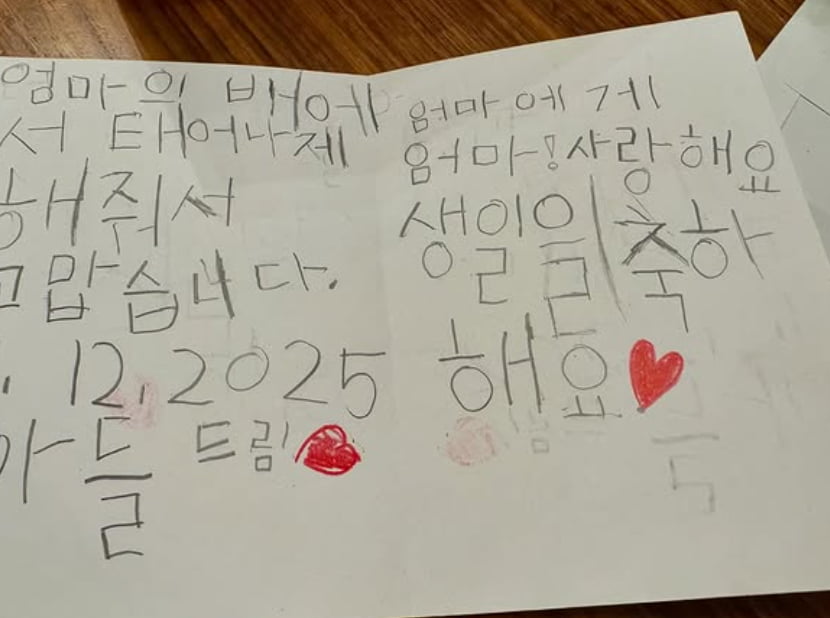 엄마에게
엄마!사랑해요
생일을 축하
해요 ❤
엄마의 배에
서 태어나제
해줘서
고맙습니다.
. 12. 2025
아들 드림 ❤